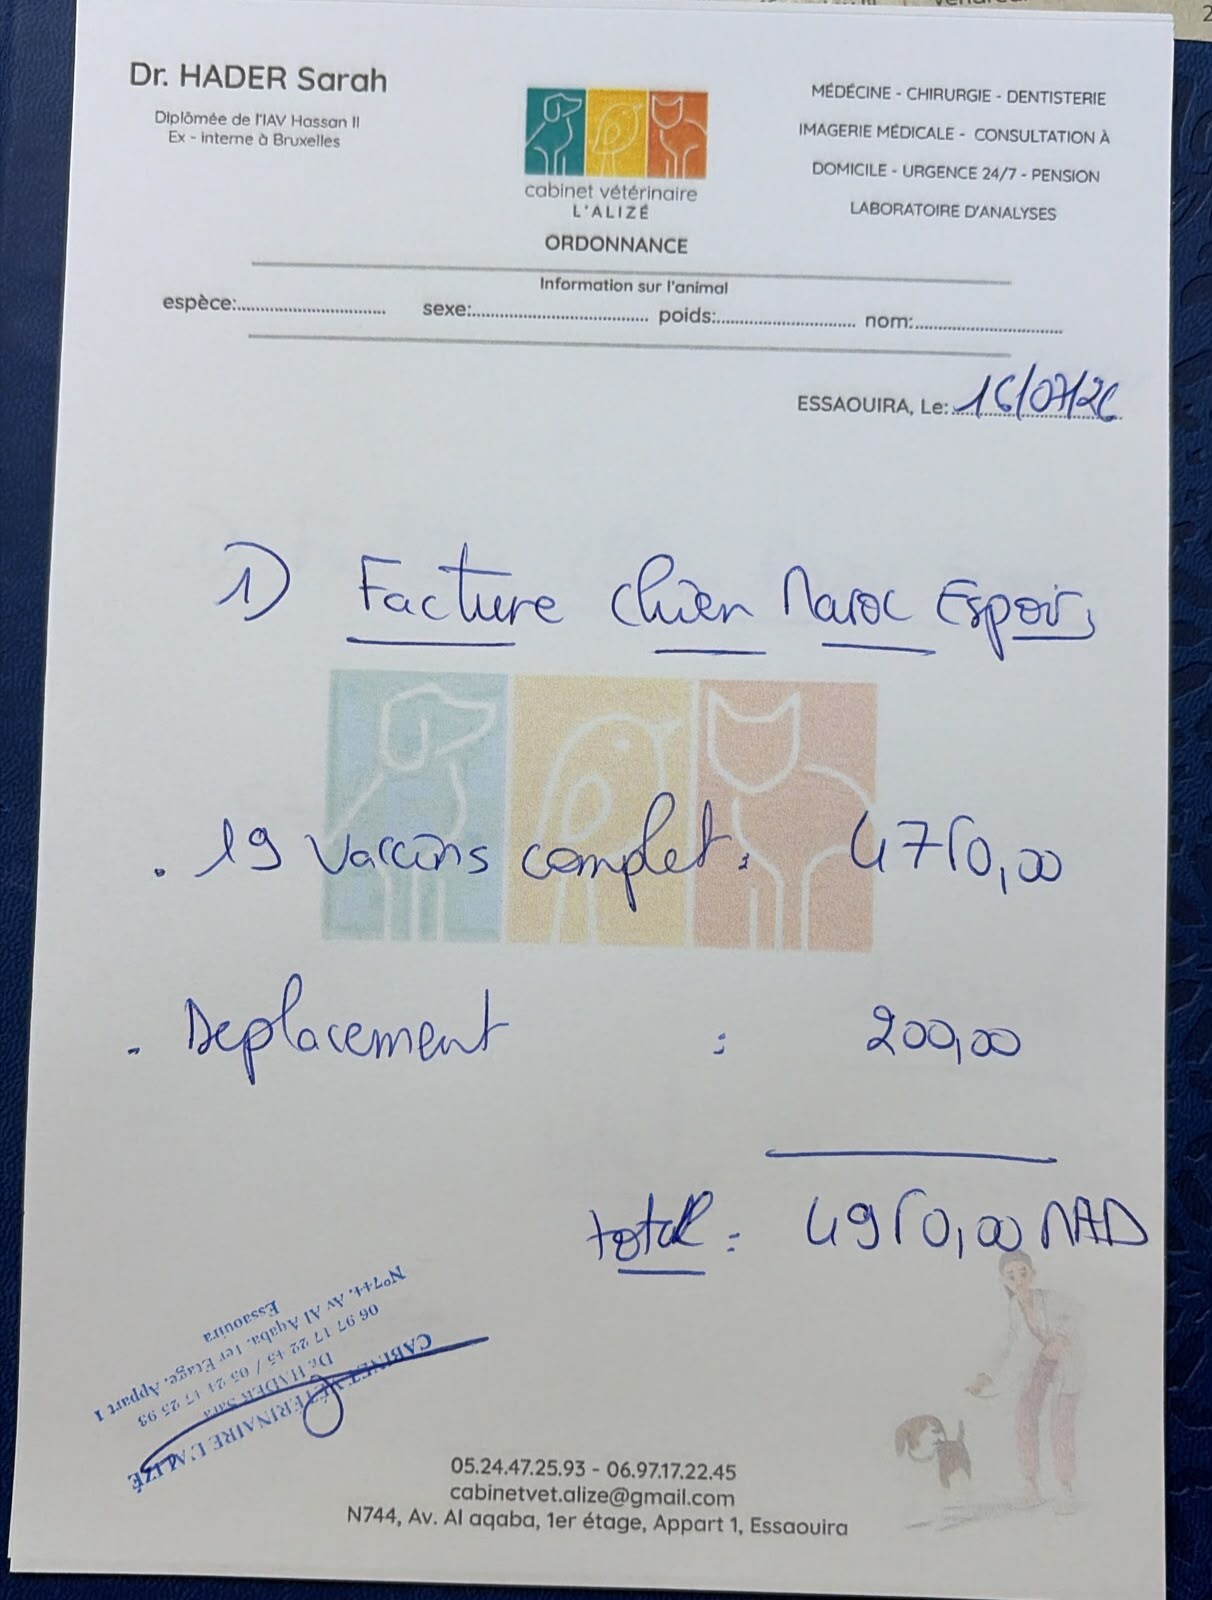 Dr. HADER Sarah
Diplômée de l'IAV Hassan II
Ex - interne à Bruxelles
cabinet vétérinaire
L'ALIZÉ
MÉDÉCINE - CHIRURGIE - DENTISTERIE
IMAGERIE MÉDICALE - CONSULTATION À
DOMICILE - URGENCE 24/7 - PENSION
LABORATOIRE D'ANALYSES
ORDONNANCE
Information sur l'animal
espèce: sexe: poids: nom:
ESSAOUIRA, Le: 16/07/26
1) Facture chien Maroc Espoir
. 19 vaccins complet : 4750,00
. Deplacement : 200,00
total : 4950,00 MAD
CABINET VÉTÉRINAIRE L'ALIZÉ
Dr. HADER Sara
06 97 17 22 45 / 05 24 47 25 93
N°744, Av Al Aqaba, 1er Etage, Appart 1
Essaouira
05.24.47.25.93 - 06.97.17.22.45
cabinetvet.alize@gmail.com
N744, Av. Al aqaba, 1er étage, Appart 1, Essaouira